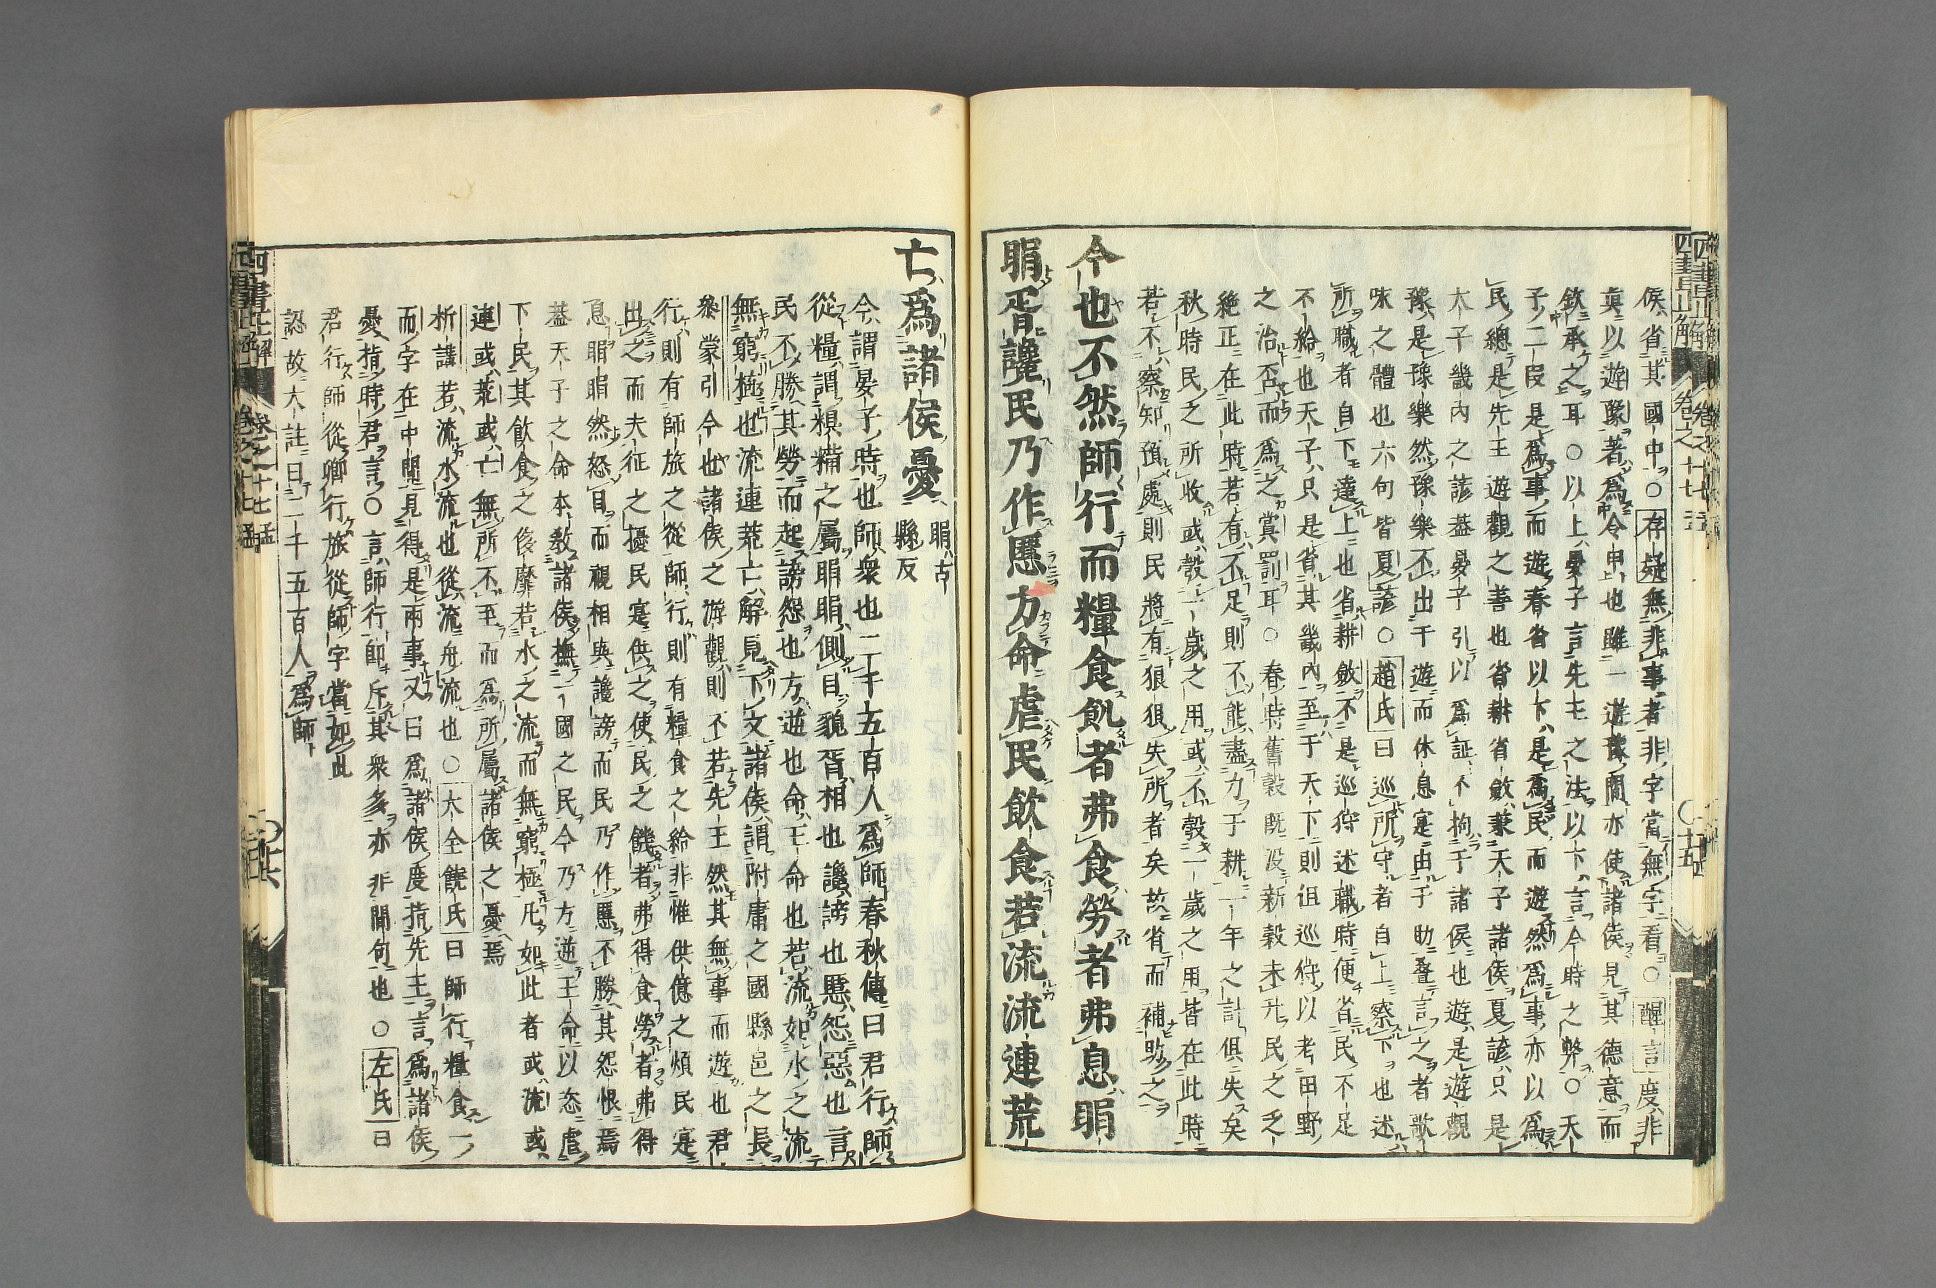 侯省其國中○存疑無非事者非字當無字看○醒言度非
眞以遊豫者爲令申也雖一遊豫間亦使諸侯見其德意而
欽承之耳○以上晏子言先王之法以下言今時之弊○天
子二段是爲事而遊春省以下是爲民而遊然爲事亦以爲
民總是先王遊觀之善也省耕省斂兼天子諸侯夏諺只是
大子畿內之諺葢晏子引以爲証不拘于諸侯也遊是遊觀
豫是豫樂然豫樂不出于遊而休息寔由于助疊言之者歌
咏之體也六句皆夏諺○趙氏曰巡所守者自上察下也述
所職者自下達上也省耕斂不是巡狩述職時便省民不足
不給也天子只是省其畿內至于天下則但巡狩以考田野
之治否而爲之賞罰耳○春時舊穀既没新穀未升民之乏
絶正在此時若有不足則不能盡力于耕一年之計俱失矣
秋時民之所收或穀一歲之用或不穀一歲之用皆在此時
若不察知預處則民將有狼狽失所者矣故省而補助之
今也不然師行而糧食飢者弗食勞者弗息睊
睊胥讒民乃作慝方命虐民飲食若流流連荒
亡爲諸侯憂 睊古縣反
今謂晏子時也師衆也二千五百人爲師春秋傳曰君行師
從糧謂糗糒之屬睊睊側目貌胥相也讒謗也慝怨惡也言
民不勝其勞而起謗怨也方逆也命王命也若流如水之流
無窮極也流連荒亡解見下文諸侯謂附庸之國縣邑之長
蒙引今也諸侯之遊觀則不若先王然其無事而遊也君
行則有師旅之從師行則有糧食之給非惟供億之煩民寔
出之而夫征之擾民寔供之使民之饑者弗得食勞者弗得
息睊睊然怒目而視相與讒謗而民乃作慝不勝其怨恨焉
葢天子之命本敎諸侯撫一國之民今乃方逆王命以恣虐
下民其飲食之侈靡若水之流而無窮極凡如此者或流或
連或荒或亡無所不至而爲所屬諸侯之憂焉
析講若流水流也從流舟流也○大全饒氏曰師行糧食一
而字在中間見得是兩事又曰爲諸侯度指先王言爲諸侯
憂指時君言○言師行師斥其衆多亦非閒句也○左氏曰
君行師從卿行旅從師字當如此
認故大註曰二千五百人爲師